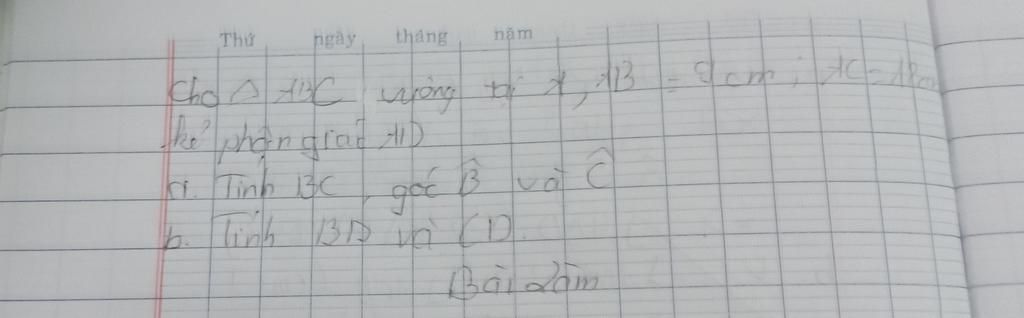 Thứ ngày tháng năm
Cho Δ ABC vuông tại A, AB = 9cm; AC = 12cm
kẻ phân giác AD
a. Tính BC, góc B̂ và Ĉ
b. Tính BD và CD.
Bài làm